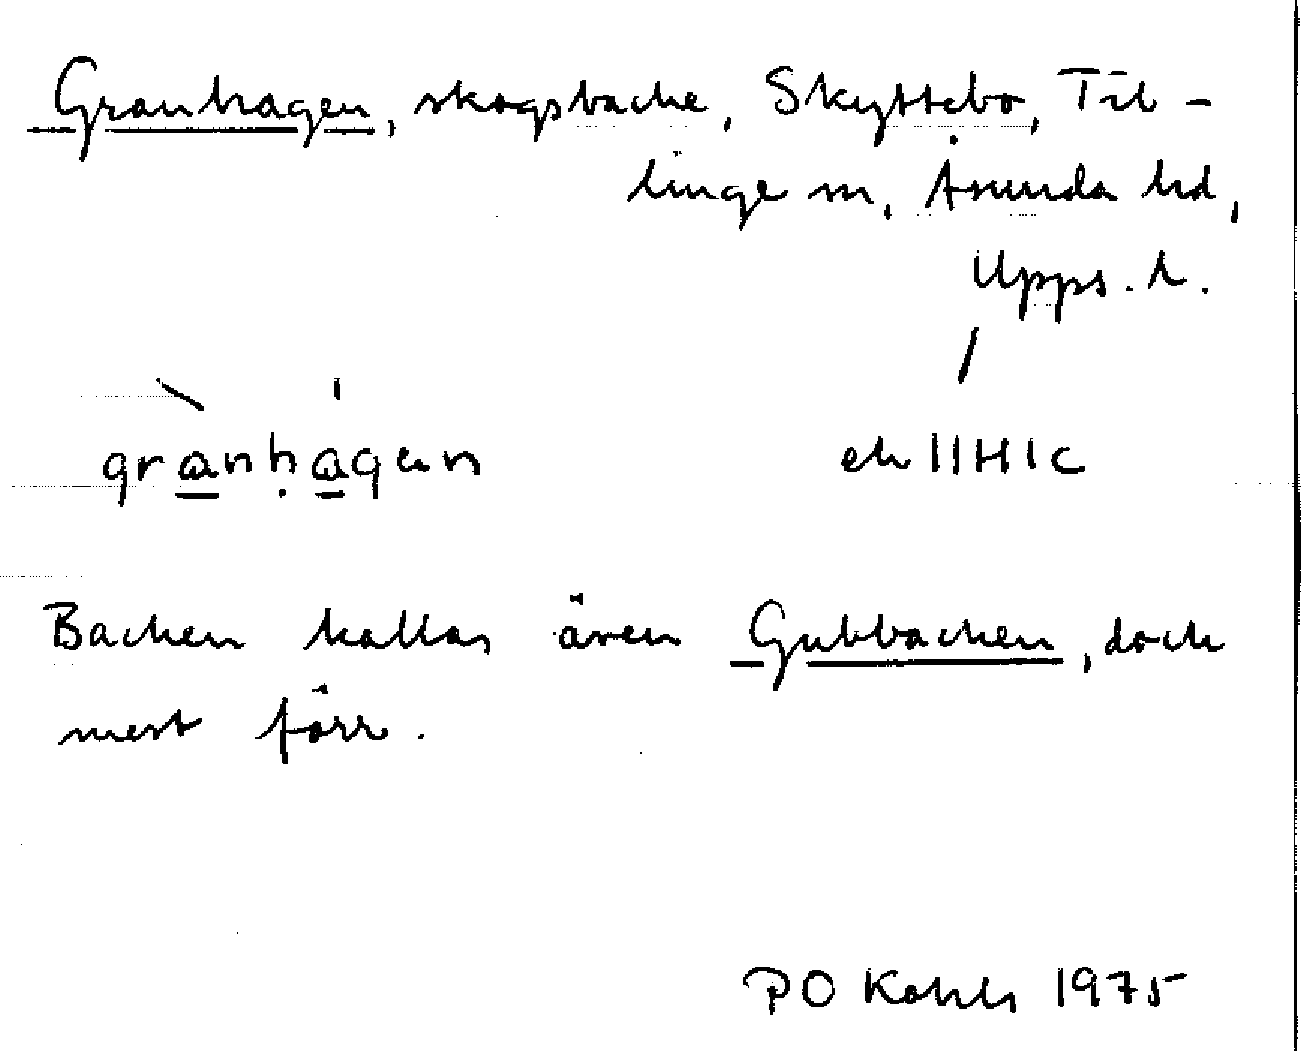 Granhagen, skogsbacke, Skyttebo, Til-
linge sn, Åsunda hd,
Upps. l.
grànhágen
ek 11H1c
Backen kallas även Gubbacken, dock
mest förr.
PO Kohls 1975